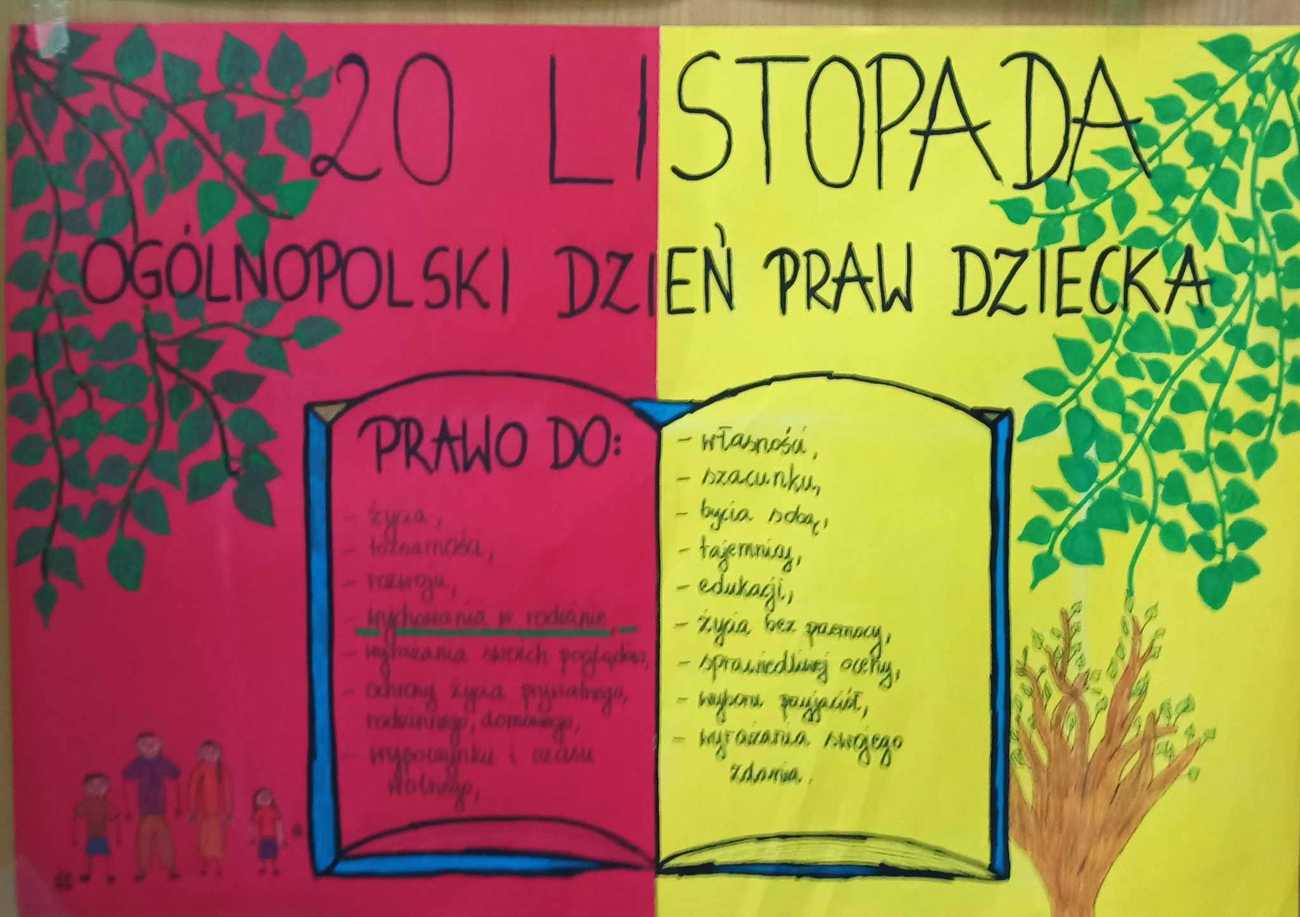 20 LISTOPADA
OGÓLNOPOLSKI DZIEŃ PRAW DZIECKA
PRAWO DO:
- życia,
- tożsamości,
- rozwoju,
- wychowania w rodzinie,
- wyrażania swoich poglądów,
- ochrony życia prywatnego,
rodzinnego, domowego,
- wypoczynku i czasu
wolnego,
- własności,
- szacunku,
- bycia sobą,
- tajemnicy,
- edukacji,
- życia bez przemocy,
- sprawiedliwej oceny,
- wyboru przyjaciół,
- wyrażania swojego
zdania.